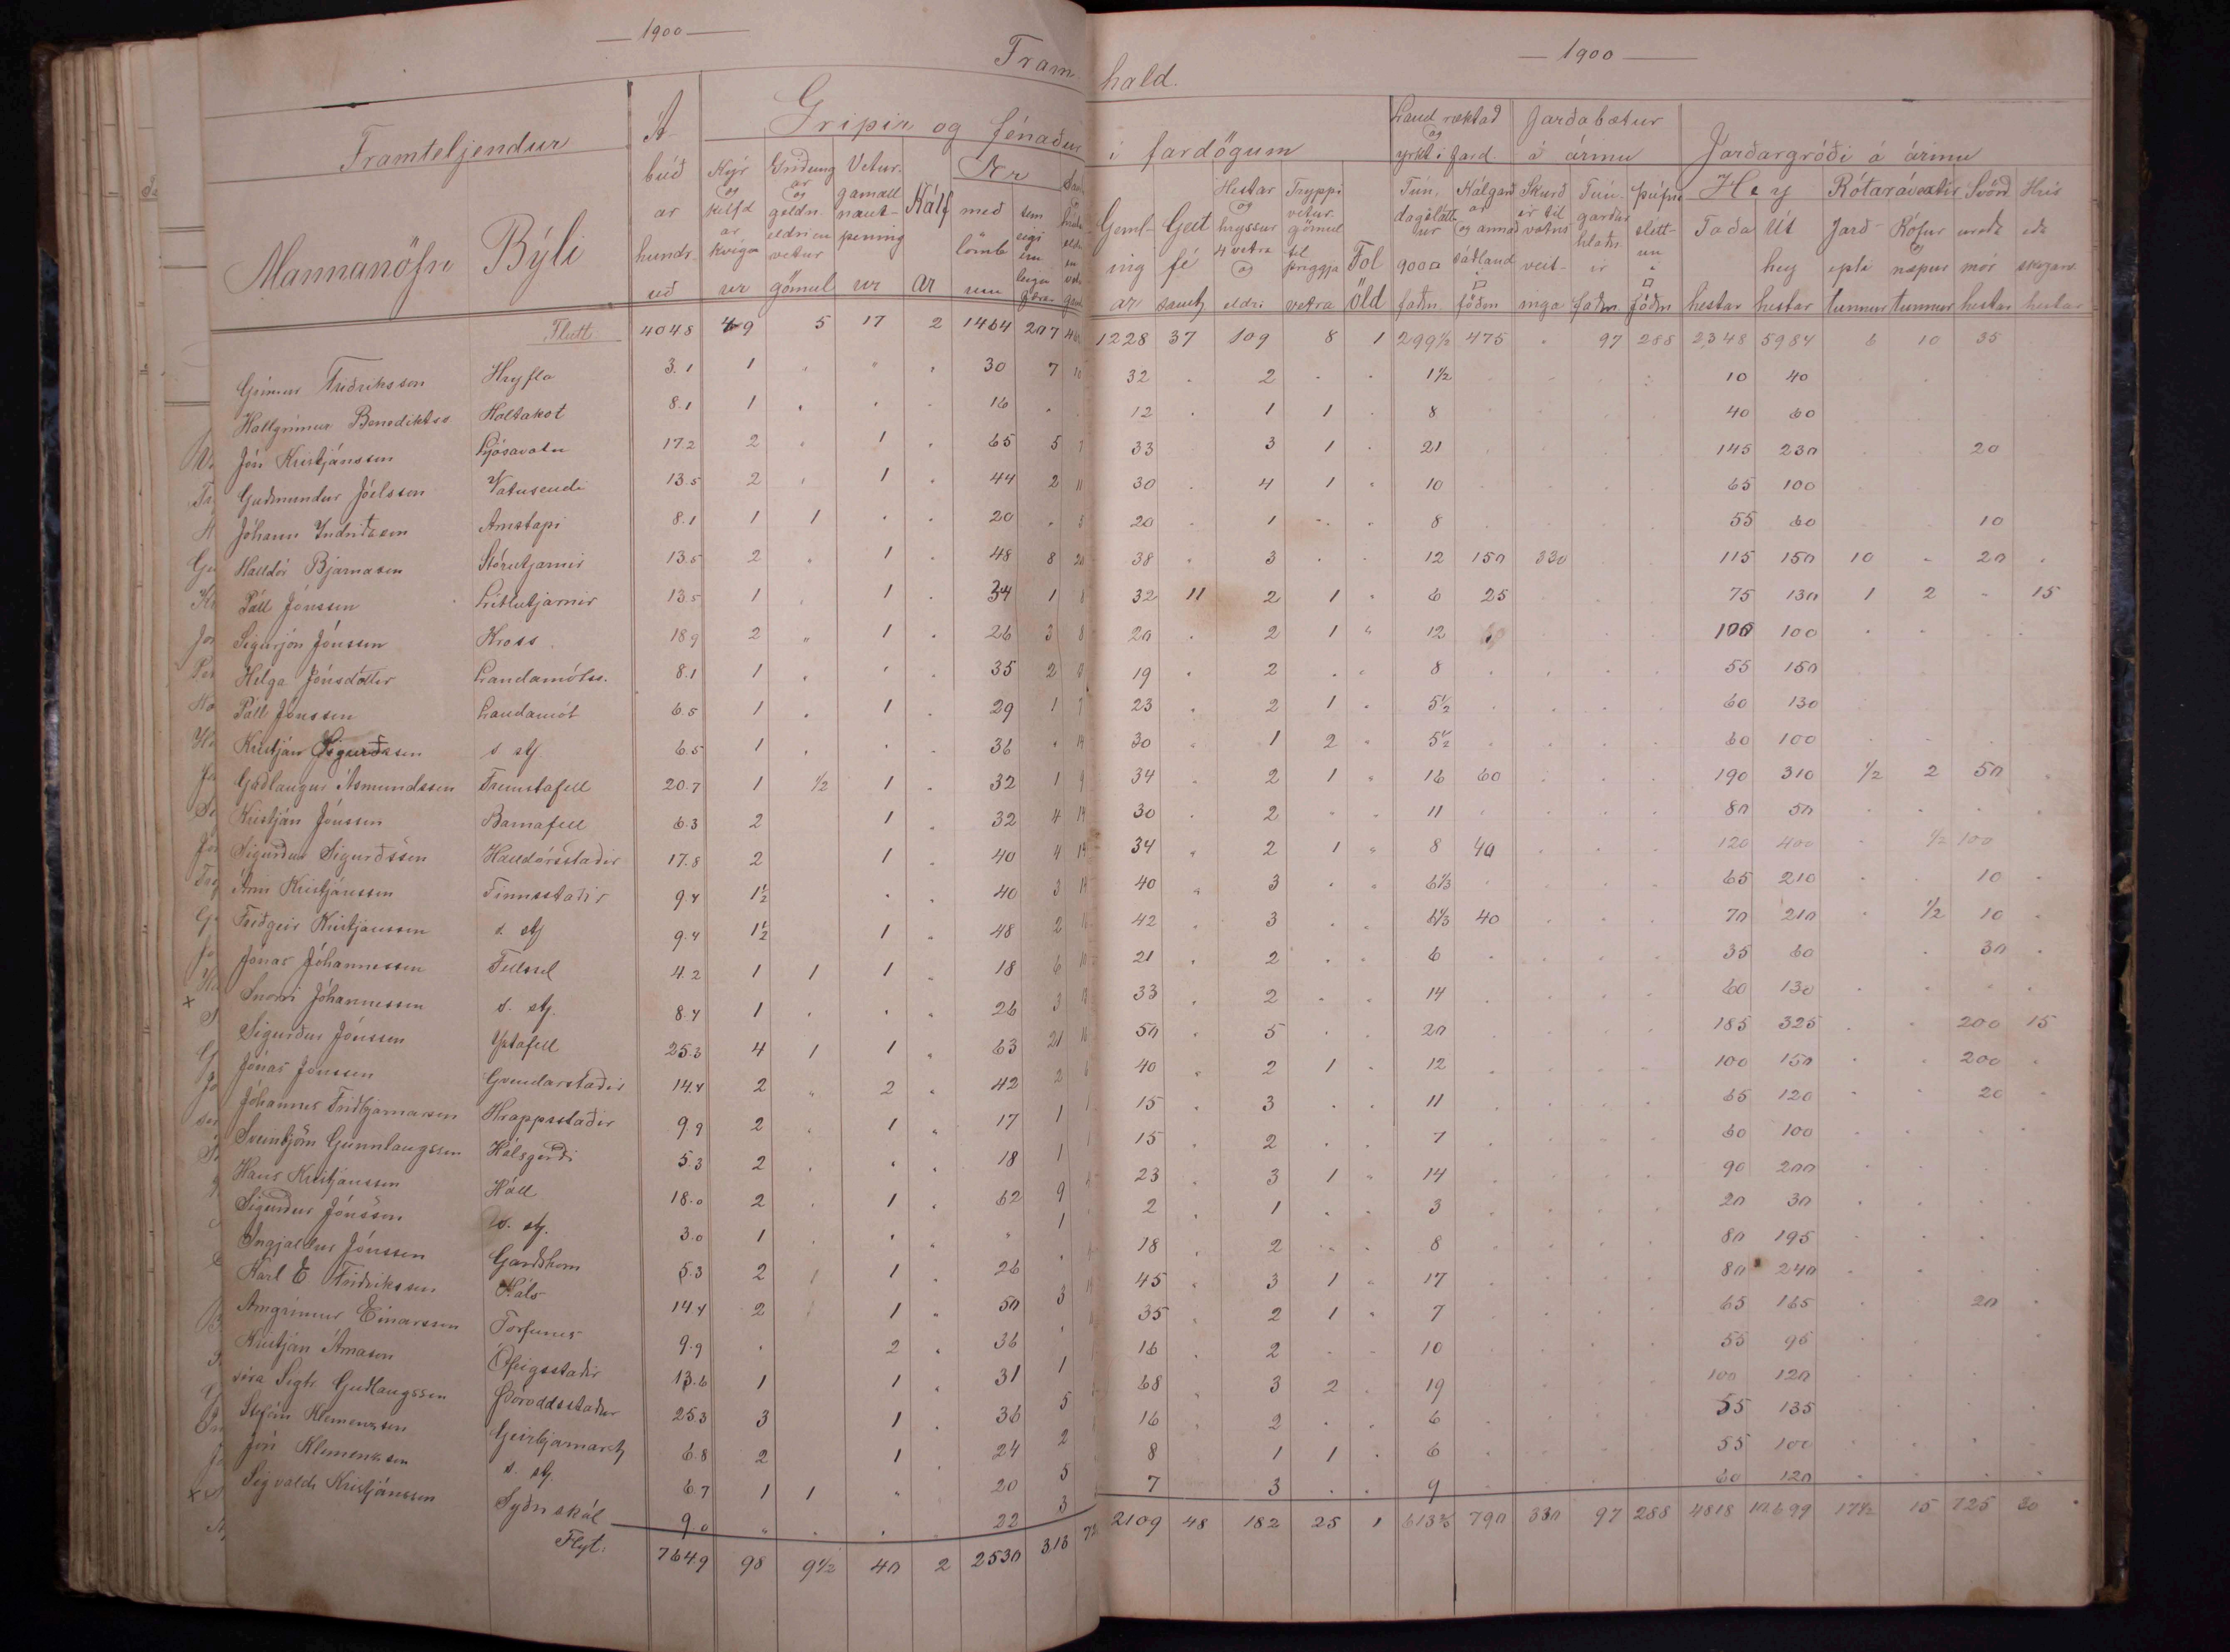 — 1900 —
— 1900 —
Fram
hald.
Framteljendur
Mannanöfn
Býli
Ábúðar hundruð
Gripir og fénaður
i fardögum
Land ræktað og yrkt i Jarð.
Jarðabætur á árinu
Jarðargróði á árinu
Kýr og kelfdar kvígur
Griðungar og geldn. eldri en vetur gömul
Veturgamall nautpeningur
Kálfar
Ær
með lömbum
sem eigi eru
Gemlingar
Geitfé samtz
Hestar og hryssur 4 vetra og eldri
Tryppi vetur gömul til þriggja vetra
Folöld
Tún, dagsláttur 900 □ faðm
Kálgarðar og annað sáðland □ föðm
Skurðir til vatnsveitinga
Túngarðar hlaðnir faðm.
Þúfnasléttun □ föðm
Hey
Taða hestar
Úthey hestar
Rótarávextir
Jarðepli tunnur
Rófur og næpur tunnur
Svörð mór hestar
Hrís eða skógarv. hestar
Flutt 4048 49 5 17 2 1464 207 1228 37 109 8 1 299½ 475 97 288 2348 5984 6 10 35
Grímur Friðriksson Hryfla 3.1 1 30 7 32 2 1½ 10 40
Hallgrímur Benediktss Holtakot 8.1 1 16 12 1 1 8 40 60
Jón Kristjánsson Ljósavatn 17.2 2 1 65 5 33 3 1 21 145 230 20
Guðmundur Jóelsson Vatnsendi 13.5 2 1 44 2 11 30 4 1 10 65 100
Jóhann Indriðason Arnstapi 8.1 1 1 20 20 1 8 55 60 10
Halldór Bjarnason Stórutjarnir 13.5 2 1 48 8 20 38 3 12 150 330 115 150 10 20
Páll Jónsson Litlutjarnir 13.5 1 1 34 1 8 32 11 2 1 6 25 75 130 1 2 15
Sigurjón Jónsson Kross 18.9 2 1 26 3 8 20 2 1 12 100 100
Helga Jónsdóttir Landamótss. 8.1 1 35 2 19 2 8 55 150
Páll Jónsson Landamót 6.5 1 1 29 1 23 2 1 5½ 60 130
Kristján Sigurðsson s. stj 6.5 1 36 14 30 1 2 5½ 60 100
Guðlaugur Ásmundsson Fremstafell 20.7 1 ½ 1 32 1 9 34 2 1 16 60 190 310 ½ 2 50
Kristján Jónsson Barnafell 6.3 2 1 32 4 14 30 2 11 80 50
Sigurður Sigurðsson Halldórsstaðir 17.8 2 1 40 4 34 2 1 8 40 120 400 ½ 100
Árni Kristjánsson Finnsstaðir 9.4 1½ 40 3 40 3 6⅓ 65 210 10
Friðgeir Kristjánsson s. stj 9.4 1½ 1 48 2 42 3 6⅓ 40 70 210 ½ 10
Jónas Jóhannesson Fellssel 4.2 1 1 1 18 6 10 21 2 6 35 60 30
Snorri Jóhannesson s. stj. 8.4 1 26 3 33 2 14 60 130
Sigurður Jónsson Ystafell 25.3 4 1 1 63 21 50 5 20 185 325 200 15
Jónas Jónsson Gvendarstaðir 14.4 2 2 42 2 40 2 1 12 100 150 200
Jóhannes Friðbjarnarson Hrappsstaðir 9.9 2 1 17 1 15 3 11 65 120 20
Sveinbjörn Gunnlaugsson Hálsgerði 5.3 2 18 1 15 2 7 60 100
Hans Kristjánsson Háll 18.0 2 1 62 9 23 3 1 14 90 200
Sigurður Jónsson s. stj. 3.0 1 1 2 1 3 20 30
Ingjaldur Jónsson Garðshorn 5.3 2 1 1 26 18 2 8 80 195
Karl E Friðriksson Háls 14.4 2 1 50 3 45 3 1 17 80 240
Arngrímur Einarsson Torfunes 9.9 2 36 35 2 1 7 65 165 20
Kristján Árnason Ófeigsstaðir 13.6 1 1 31 1 16 2 10 55 95
séra Sigtr. Guðlaugsson Þóroddsstaður 25.3 3 1 36 5 68 3 2 19 100 120
Stefán Klemensson Geirbjarnarst 6.8 2 1 24 2 16 2 6 55 135
Jón Klemensson s. stj. 6.7 1 1 20 5 8 1 1 6 55 100
Sigvaldi Kristjánsson Syðri skál 9.0 22 3 7 3 9 60 120
Flyt. 764.9 98 9½ 40 2 2530 313 2109 48 182 25 1 790 330 97 288 4818 10.699 17½ 15 725 30